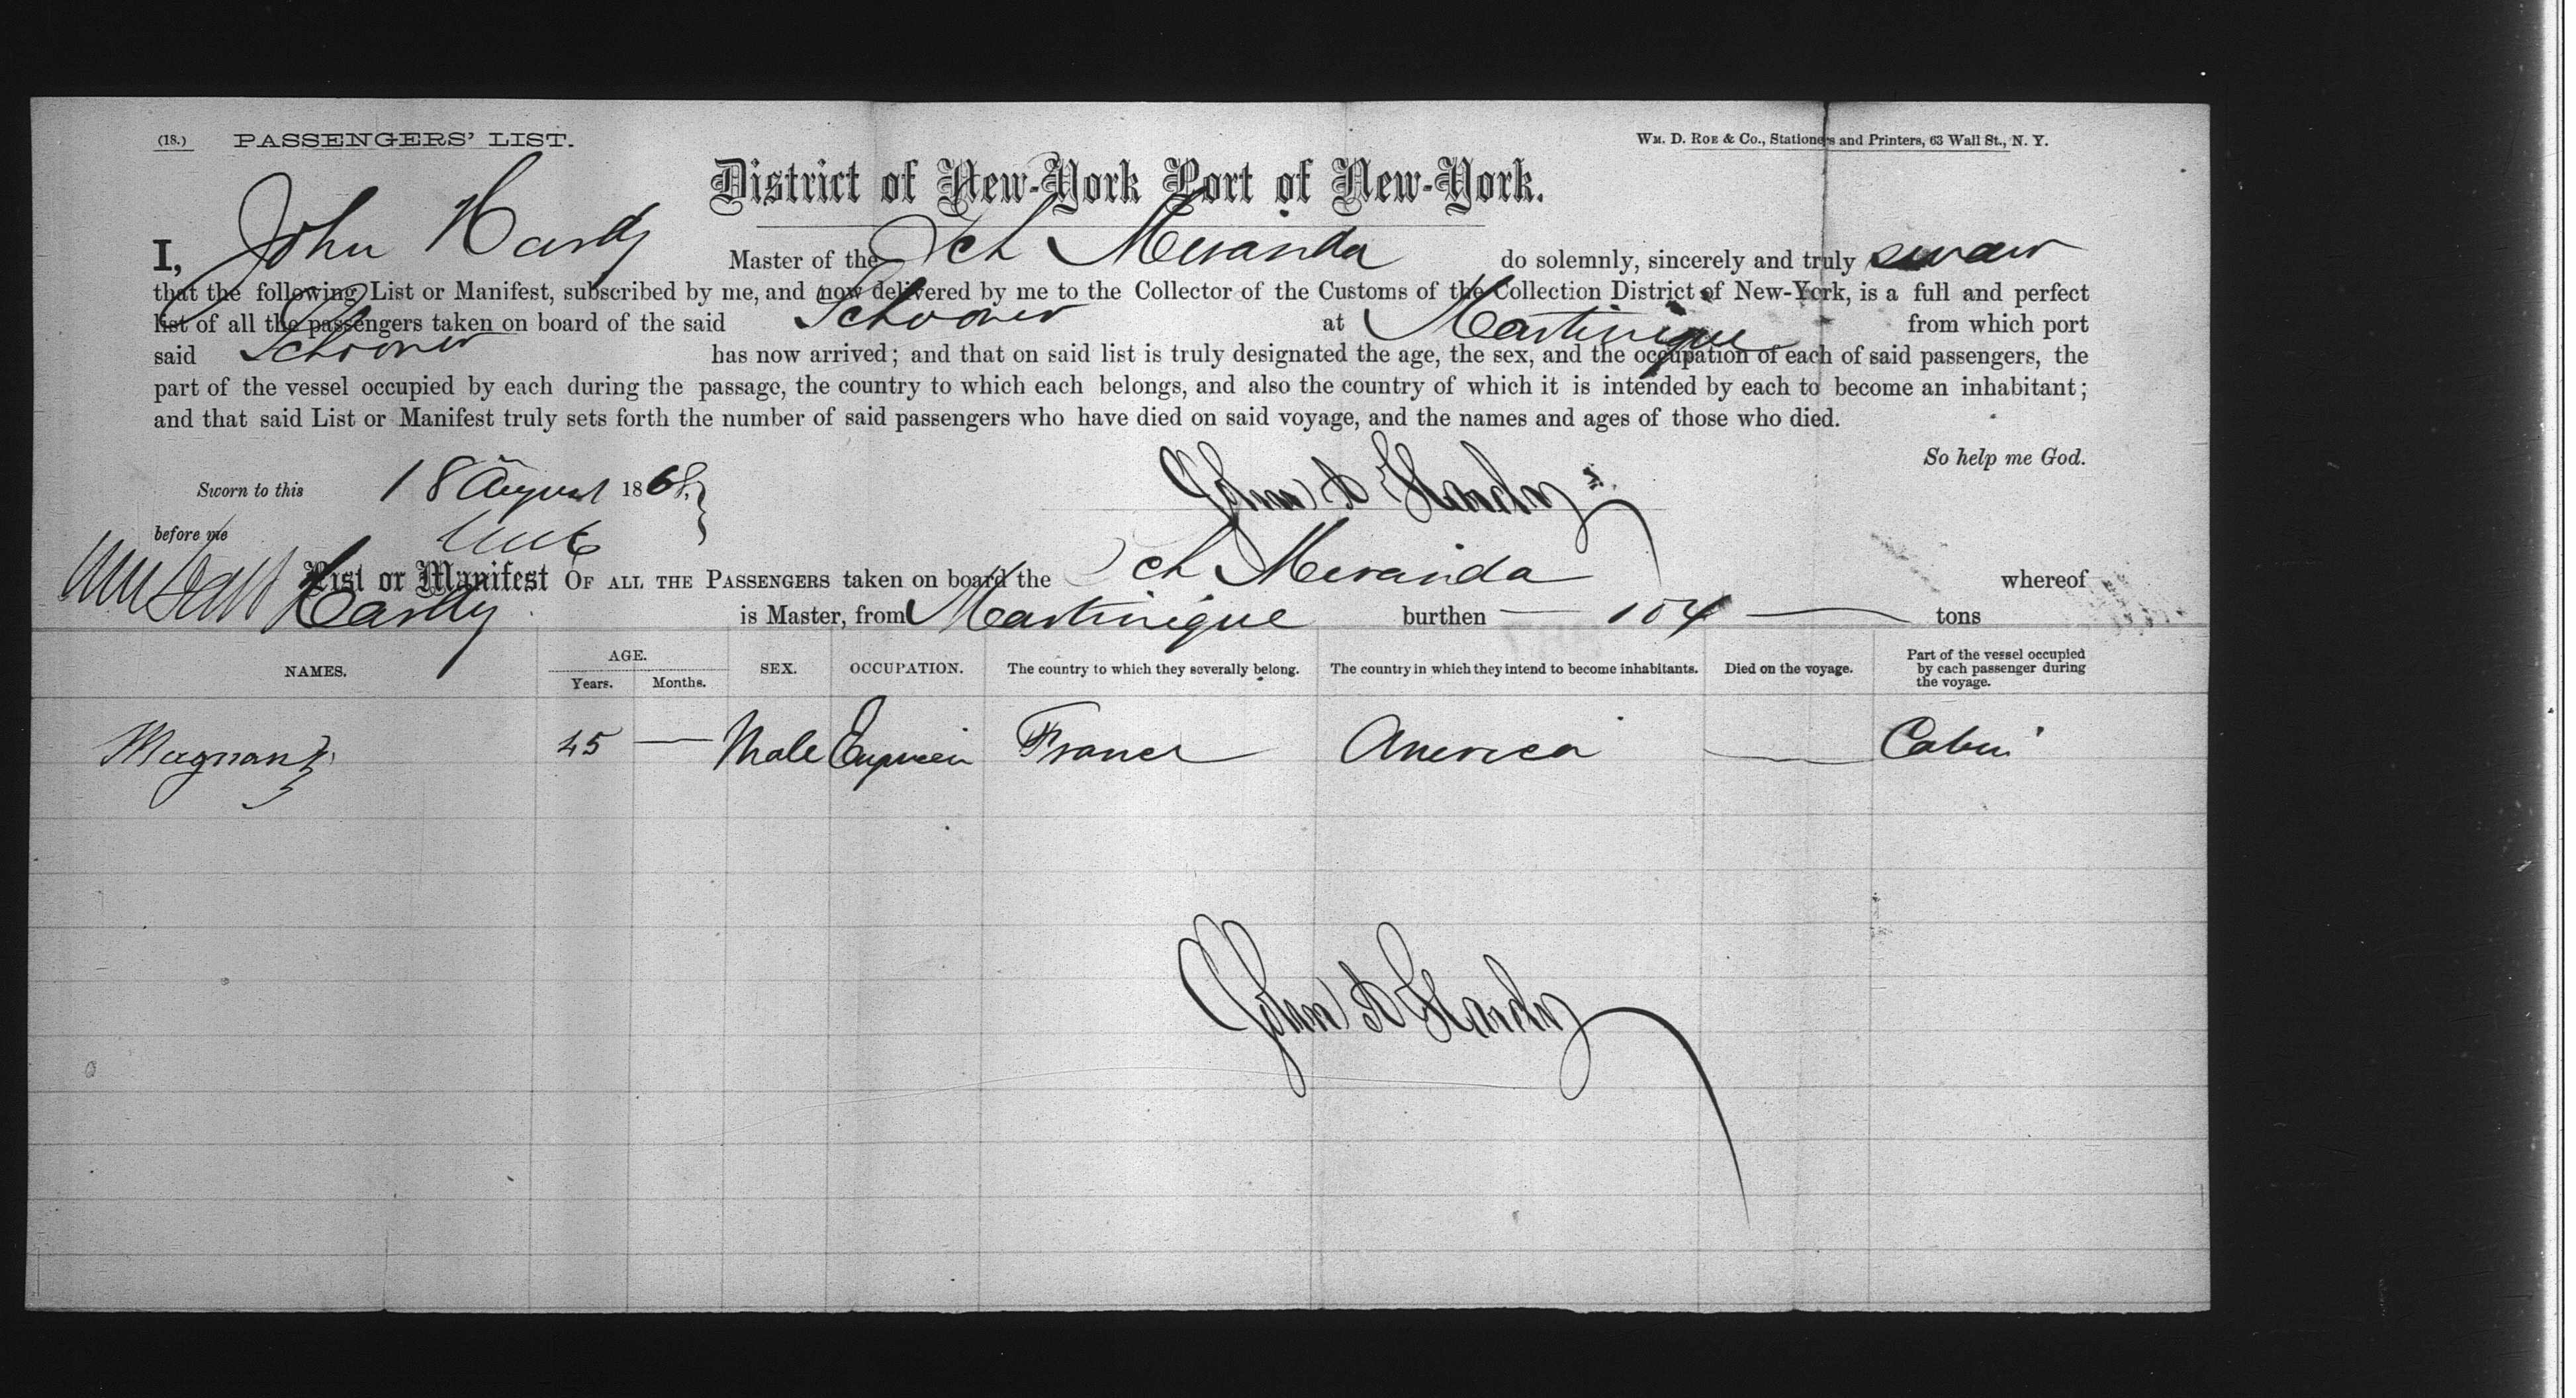 (18.) PASSENGERS' LIST.
WM. D. ROE & CO., Stationers and Printers, 63 Wall St., N. Y.
District of New-York Port of New-York.
I, John Hardy Master of the Sch Miranda do solemnly, sincerely and truly swear
that the following List or Manifest, subscribed by me, and now delivered by me to the Collector of the Customs of the Collection District of New-York, is a full and perfect
list of all the passengers taken on board of the said Schooner at Martinique from which port
said Schooner has now arrived; and that on said list is truly designated the age, the sex, and the occupation of each of said passengers, the
part of the vessel occupied by each during the passage, the country to which each belongs, and also the country of which it is intended by each to become an inhabitant;
and that said List or Manifest truly sets forth the number of said passengers who have died on said voyage, and the names and ages of those who died.
So help me God.
Sworn to this 18 August 1868
John A Hardy
before me
List or Manifest OF ALL THE PASSENGERS taken on board the Sch Miranda whereof
Hardy is Master, from Martinique burthen 104 tons
NAMES. AGE. Years. Months. SEX. OCCUPATION. The country to which they severally belong. The country in which they intend to become inhabitants. Died on the voyage. Part of the vessel occupied by each passenger during the voyage.
45 — Male France America — Cabin
John A Hardy